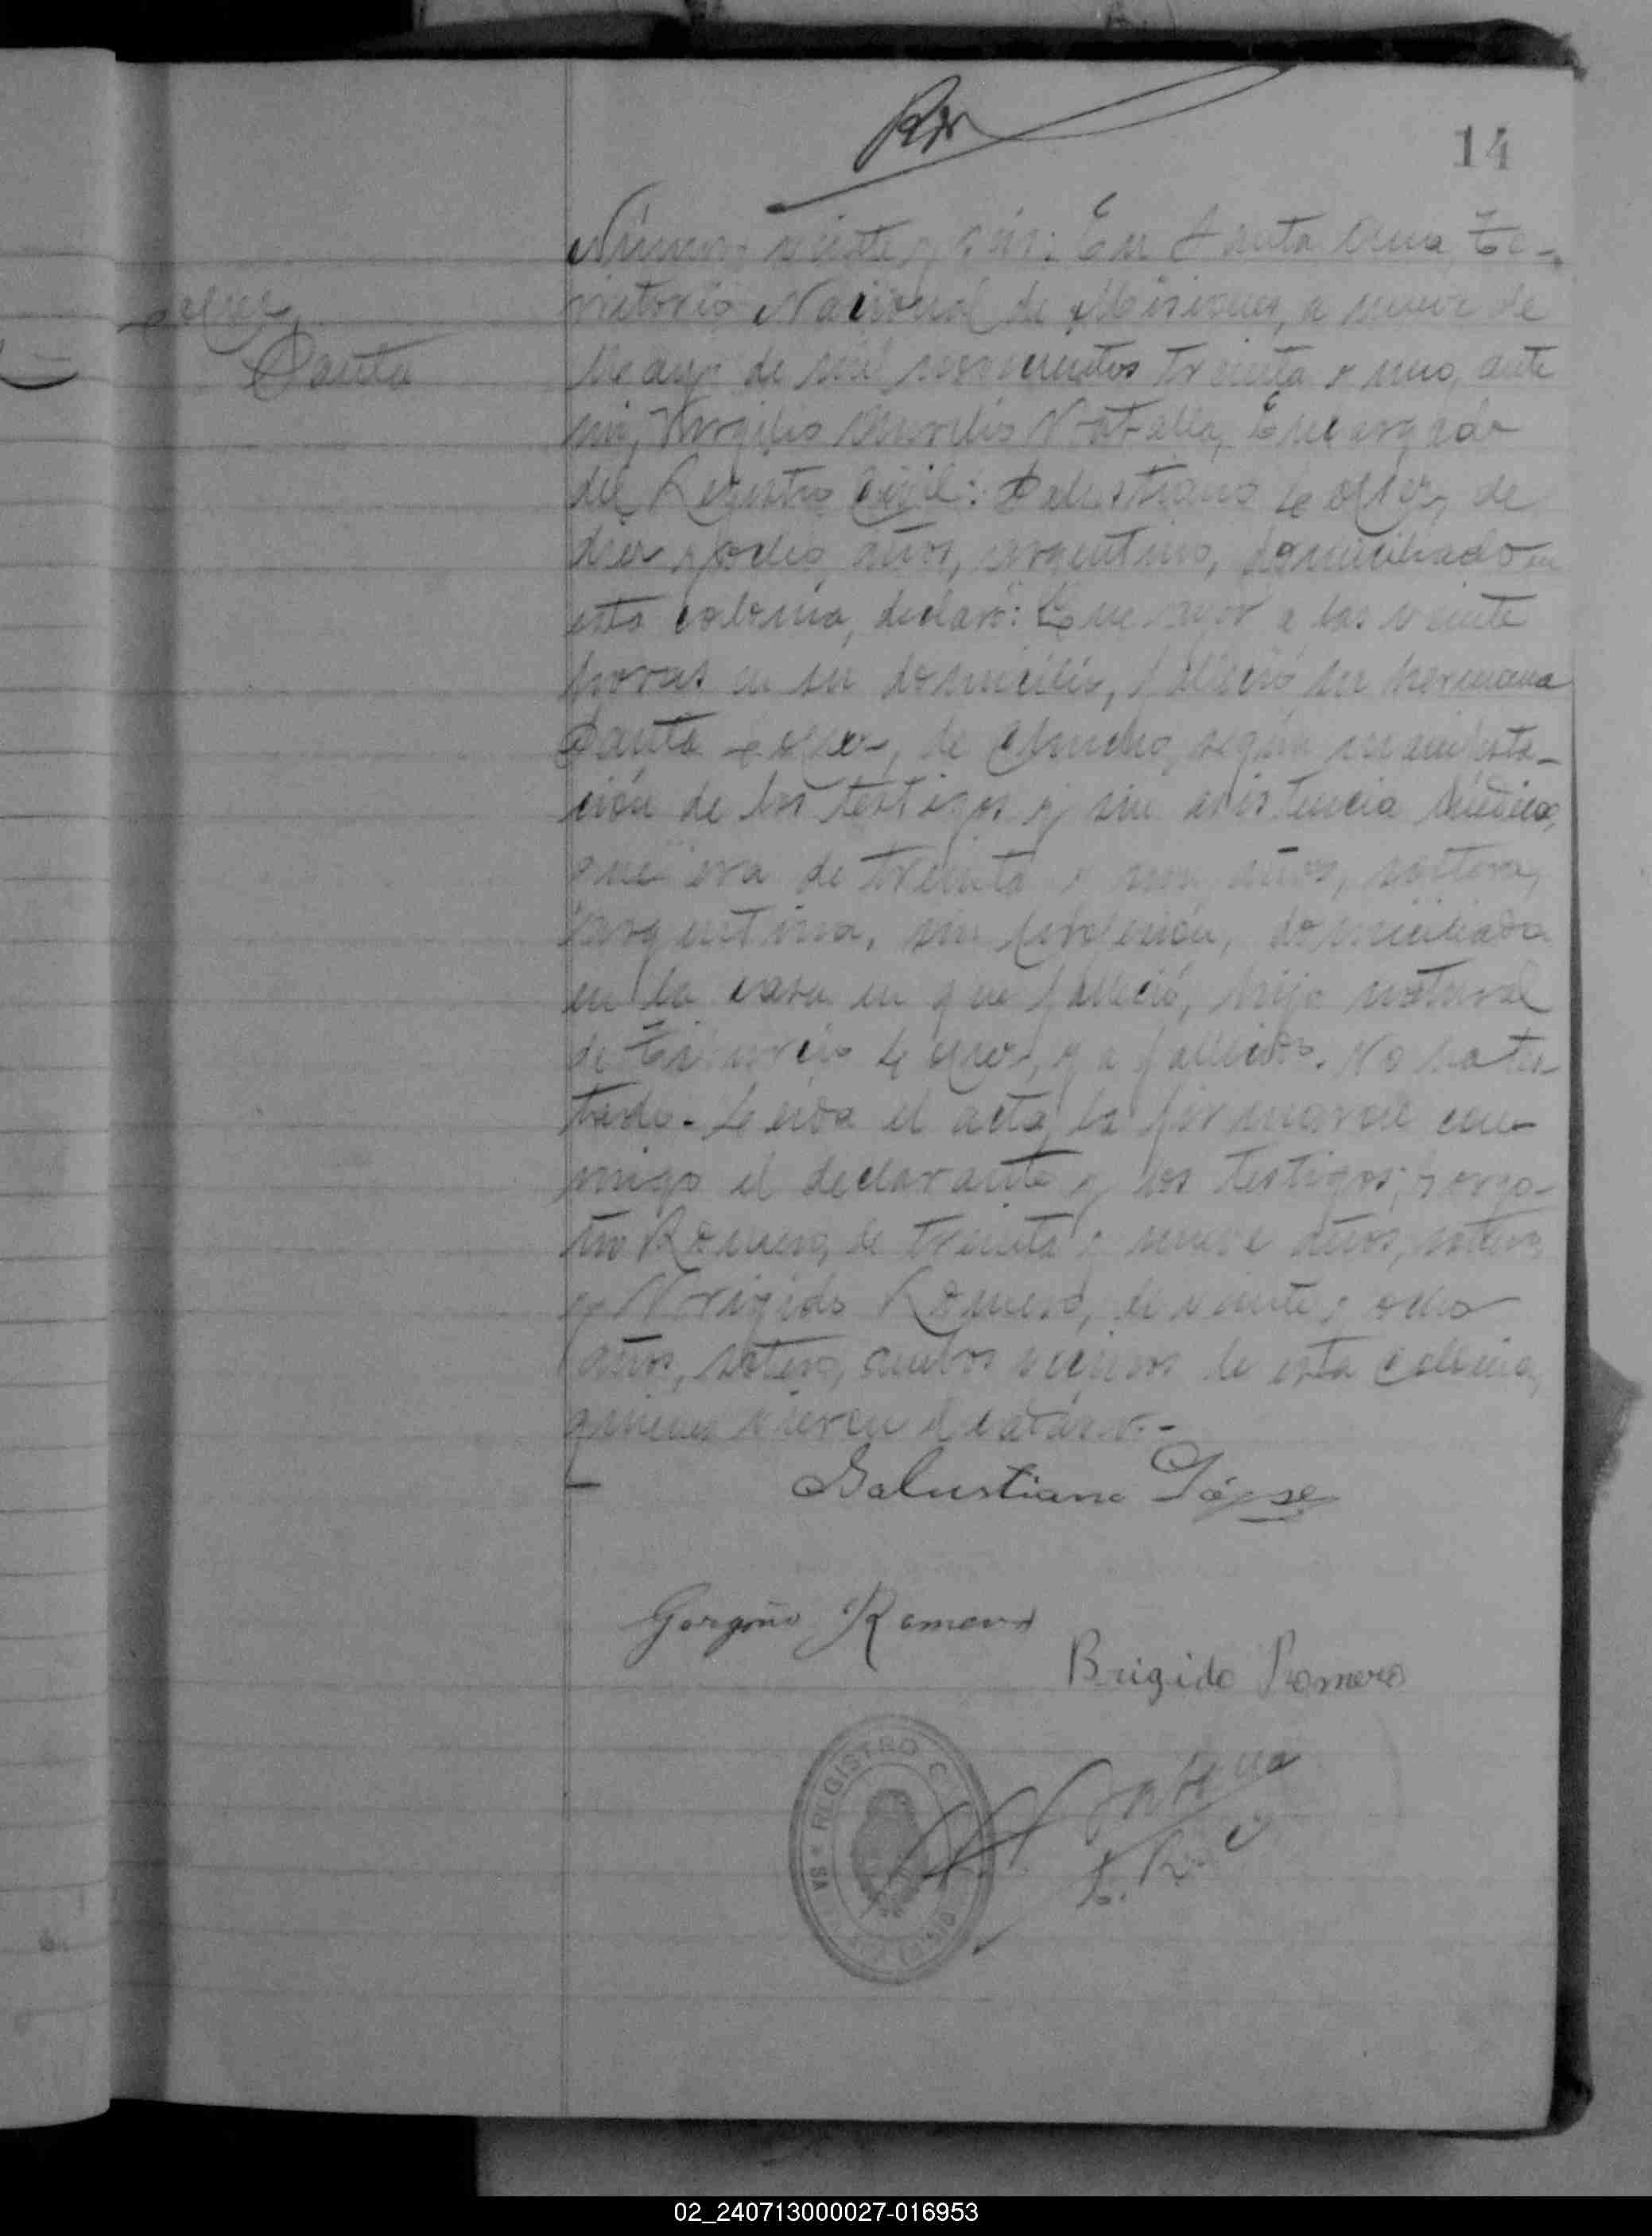 14
Número veinte y seis: En Santa Ana, Te-
rritorio Nacional de Misiones, a nueve de
López,
Santa
Mayo de mil novecientos treinta y uno, ante
mi, Virgilio Aurelio Natalla, Encargado
del Registro Civil: Salustiano López, de
diez y ocho años, argentino, domiciliado en
esta colonia, declaró: Que ayer a las veinte
horas en su domicilio, falleció su hermana
Santa López, de, según manifesta-
ción de los testigos y sin asistencia médica,
que era de treinta y un años, soltera,
argentina, sin profesión, domiciliada
en la casa en que falleció, hija natural
de López, ya fallecido. No ha tes-
tado. Leída el acta, la firmaron con-
migo el declarante y los testigos; Gorgo-
nio Romero, de treinta y nueve años, soltero
y Brígido Romero, de veinte y ocho
años, soltero, ambos vecinos de esta colonia,
quienes vieron el cadáver.-
Salustiano Lópse
Gorgoño Romero
Brigido Romero
REGISTRO C
E. R. C
02_240713000027-016953